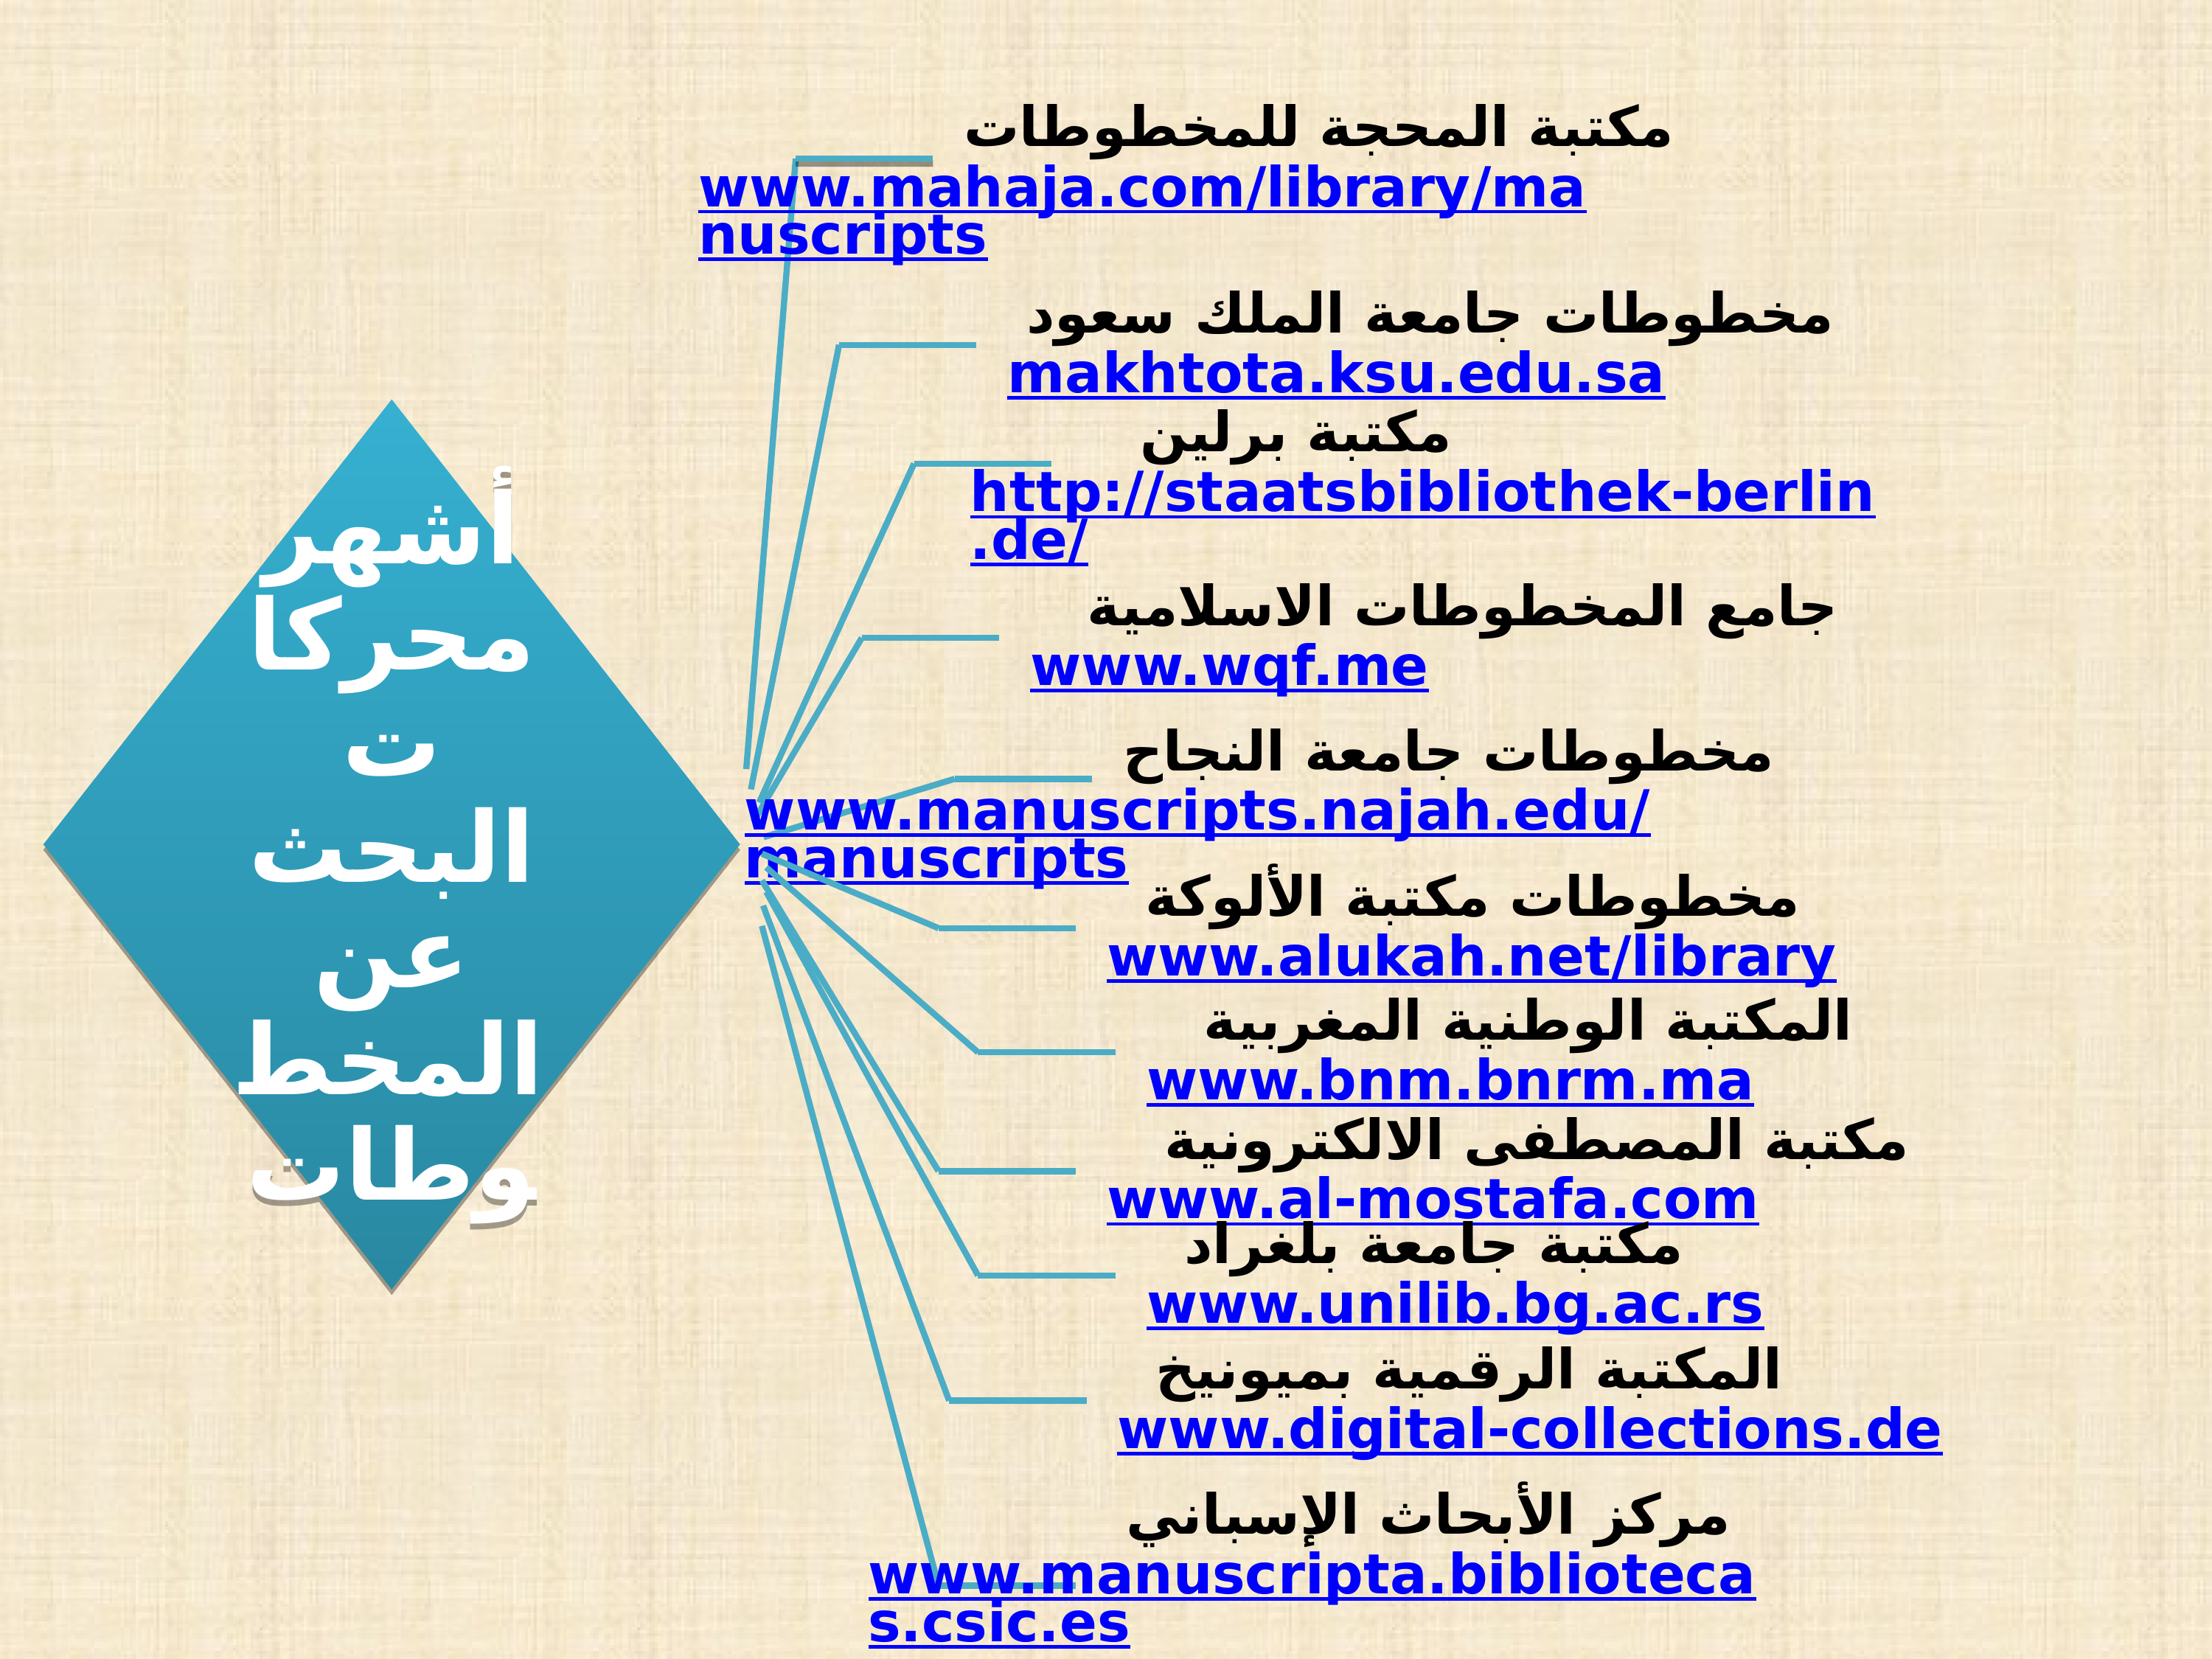 أشهر
محركا
ت
البحث
عن
المخط
وطات
مكتبة المحجة للمخطوطات
www.mahaja.com/library/ma
nuscripts
مخطوطات جامعة الملك سعود
makhtota.ksu.edu.sa
مكتبة برلين
http://staatsbibliothek-berlin
.de/
جامع المخطوطات الاسلامية
www.wqf.me
مخطوطات جامعة النجاح
www.manuscripts.najah.edu/
manuscripts
مخطوطات مكتبة الألوكة
www.alukah.net/library
المكتبة الوطنية المغربية
www.bnm.bnrm.ma
مكتبة المصطفى الالكترونية
www.al-mostafa.com
مكتبة جامعة بلغراد
www.unilib.bg.ac.rs
المكتبة الرقمية بميونيخ
www.digital-collections.de
مركز الأبحاث الإسباني
www.manuscripta.biblioteca
s.csic.es